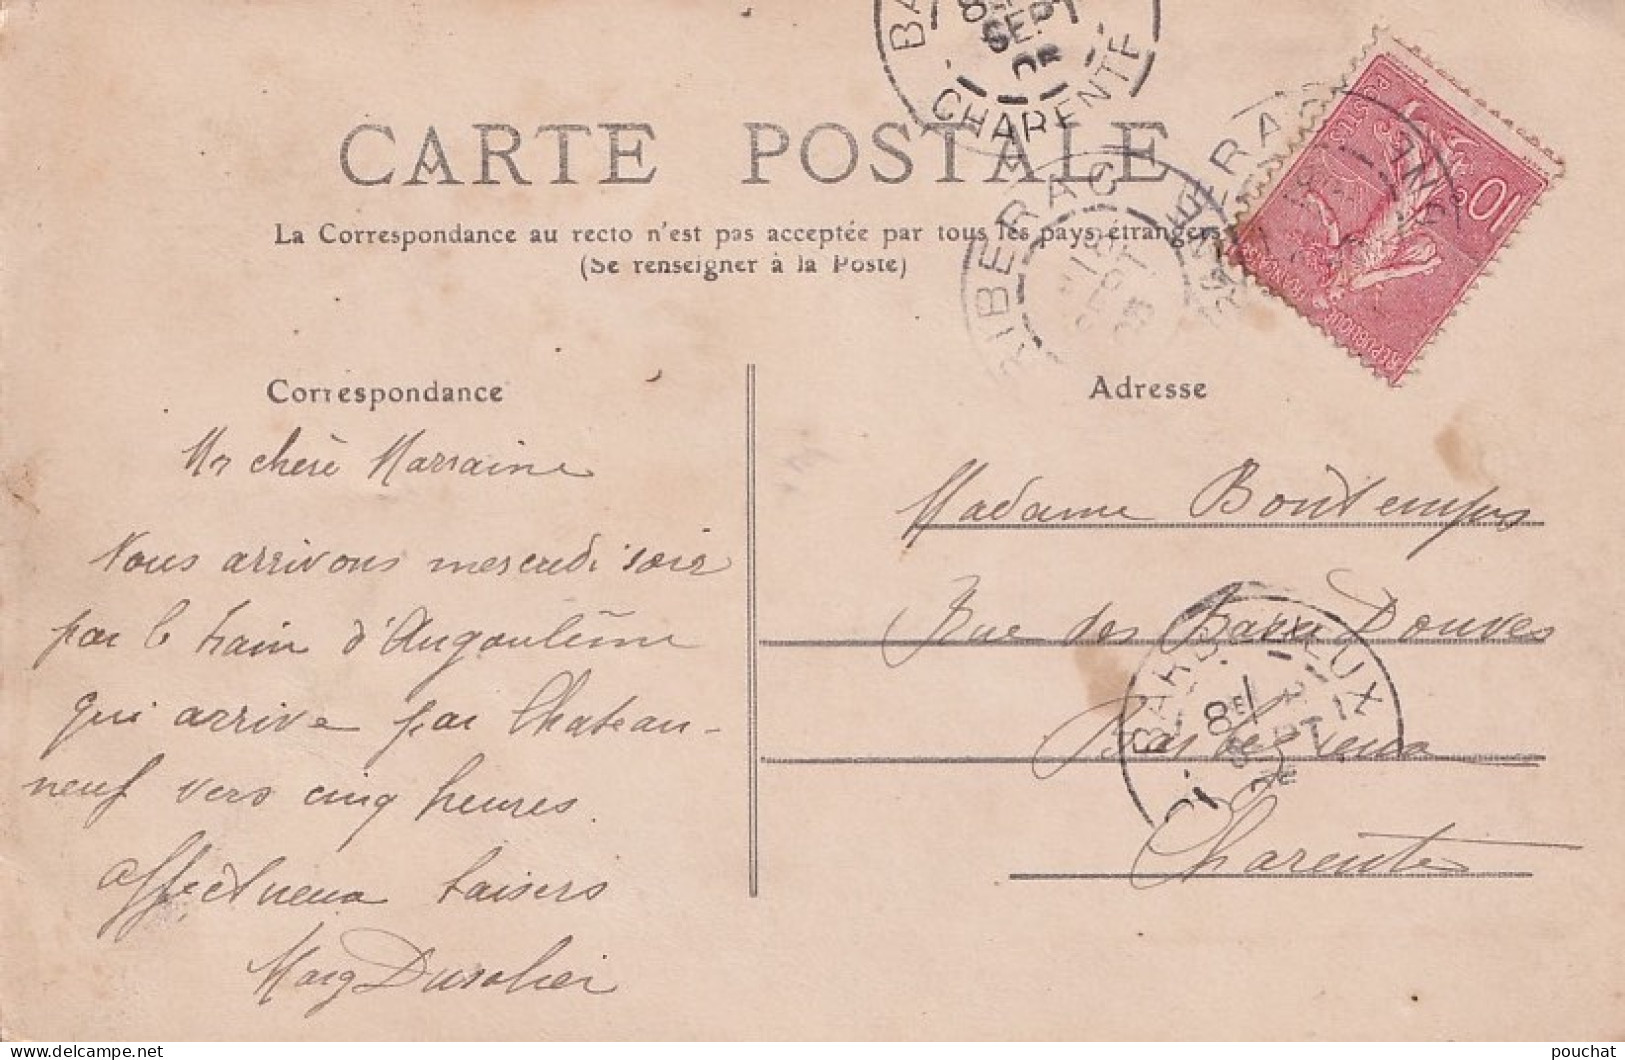 CARTE POSTALE
La Correspondance au recto n'est pas acceptée par tous les pays étrangers
(Se renseigner à la Poste)
CHARENTE
SEPT
RIBERAC
SEPT
POSTES
10c
REPUBLIQUE FRANÇAISE
Correspondance
Adresse
Ma chère Marraine
Nous arrivons mercredi soir
par le train d'Angoulême
qui arrive par Chateau-
neuf vers cinq heures.
affectueux baisers
Marg Dusolier
Madame Bontemps
Rue des Basses Douves
Barbezieux
Charente
BARBEZIEUX
8E
SEPT
delcampe.net
pouchat